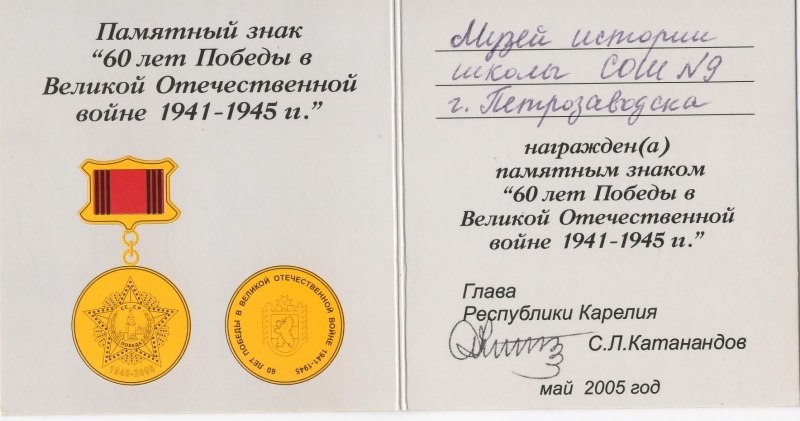 Памятный знак
“60 лет Победы в
Великой Отечественной
войне 1941-1945 гг.”
СССР
ПОБЕДА
1945-2005
60 ЛЕТ ПОБЕДЫ В ВЕЛИКОЙ ОТЕЧЕСТВЕННОЙ ВОЙНЕ 1941-1945
Музей истории
школы СОШ №9
г. Петрозаводска
награжден(а)
памятным знаком
“60 лет Победы в
Великой Отечественной
войне 1941-1945 гг.”
Глава
Республики Карелия
С.Л.Катанандов
май 2005 год